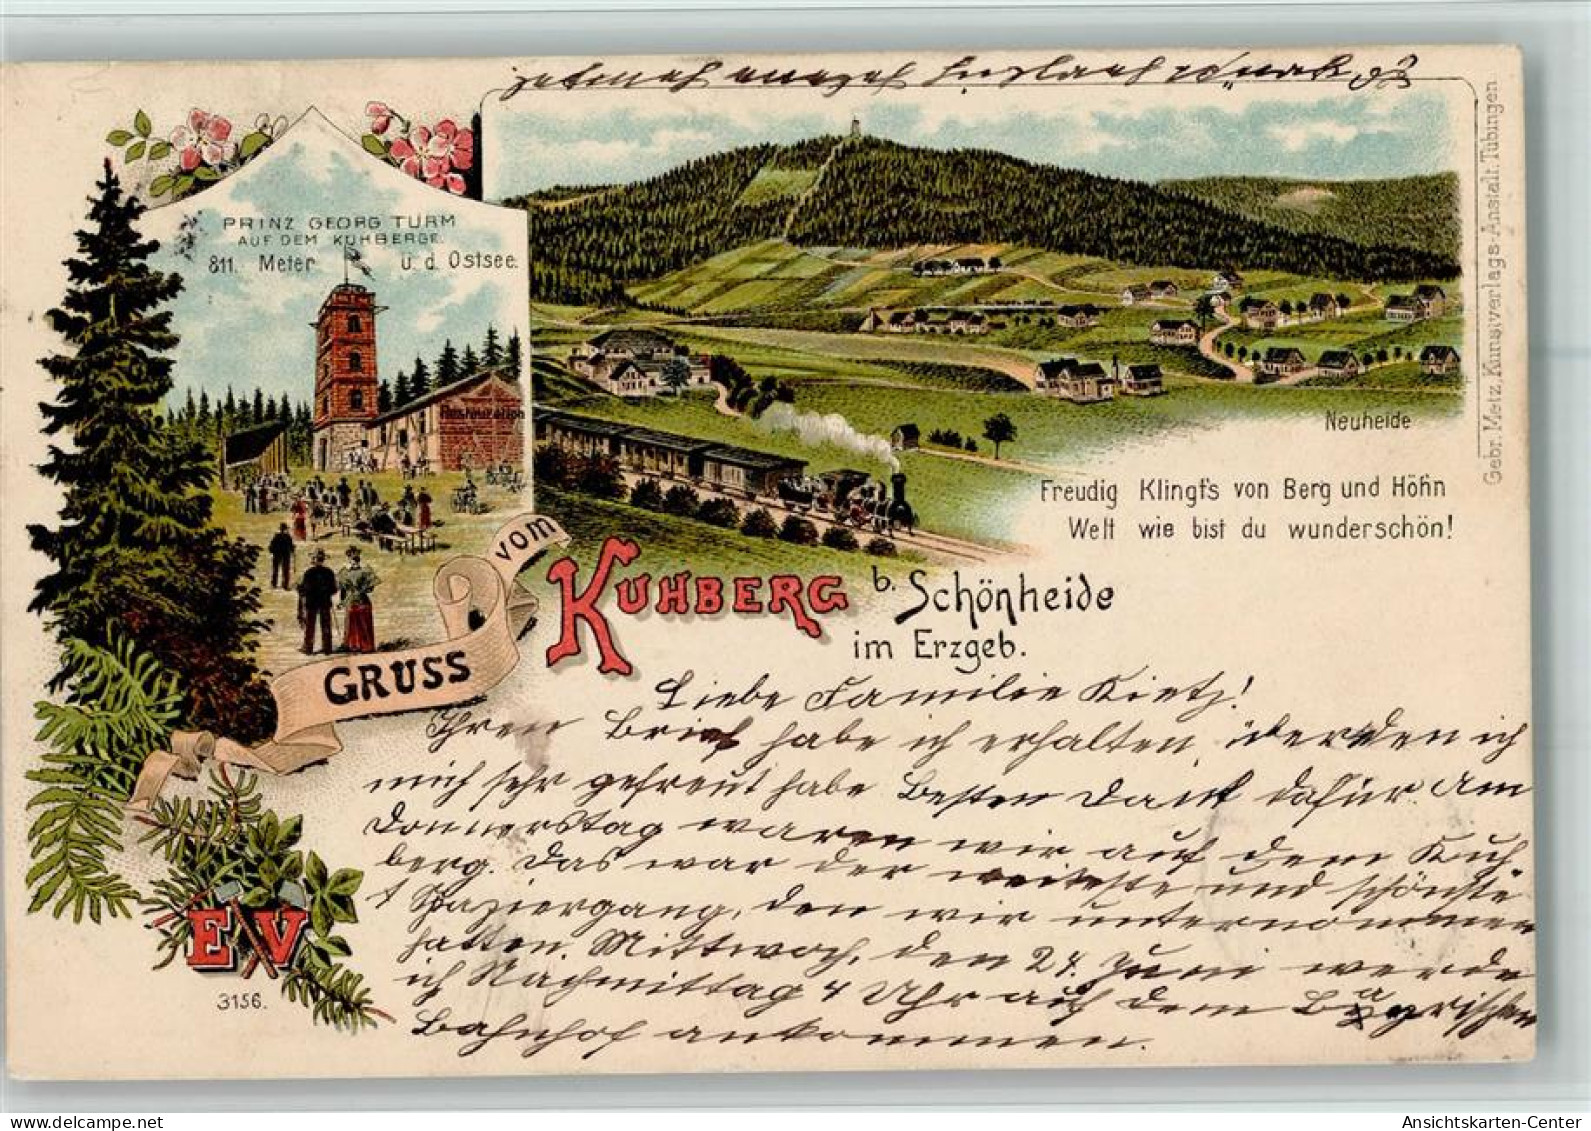 PRINZ GEORG TURM
AUF DEM KUHBERGE.
811. Meter ü. d. Ostsee.
Restauration
Neuheide
Freudig Klingt's von Berg und Höhn
Welt wie bist du wunderschön!
Gebr. Metz, Kunstverlags-Anstalt, Tübingen
GRUSS vom
KUHBERG b. Schönheide
im Erzgeb.
Liebe Familie Kietz!
Ihren Brief habe ich erhalten, über den ich
mich sehr gefreut habe Besten Dank dafür Am
Donnerstag waren wir auf dem Kuh-
berg. Das war der weiteste und schönste
Spaziergang, den wir unternommen
hatten. Mittwoch, den 24. Juni werde
ich Nachmittag 4 Uhr auf dem Bayrischen
Bahnhof ankommen.
EV
3156.
www.ansichtskartenversand.com
Ansichtskarten-Center